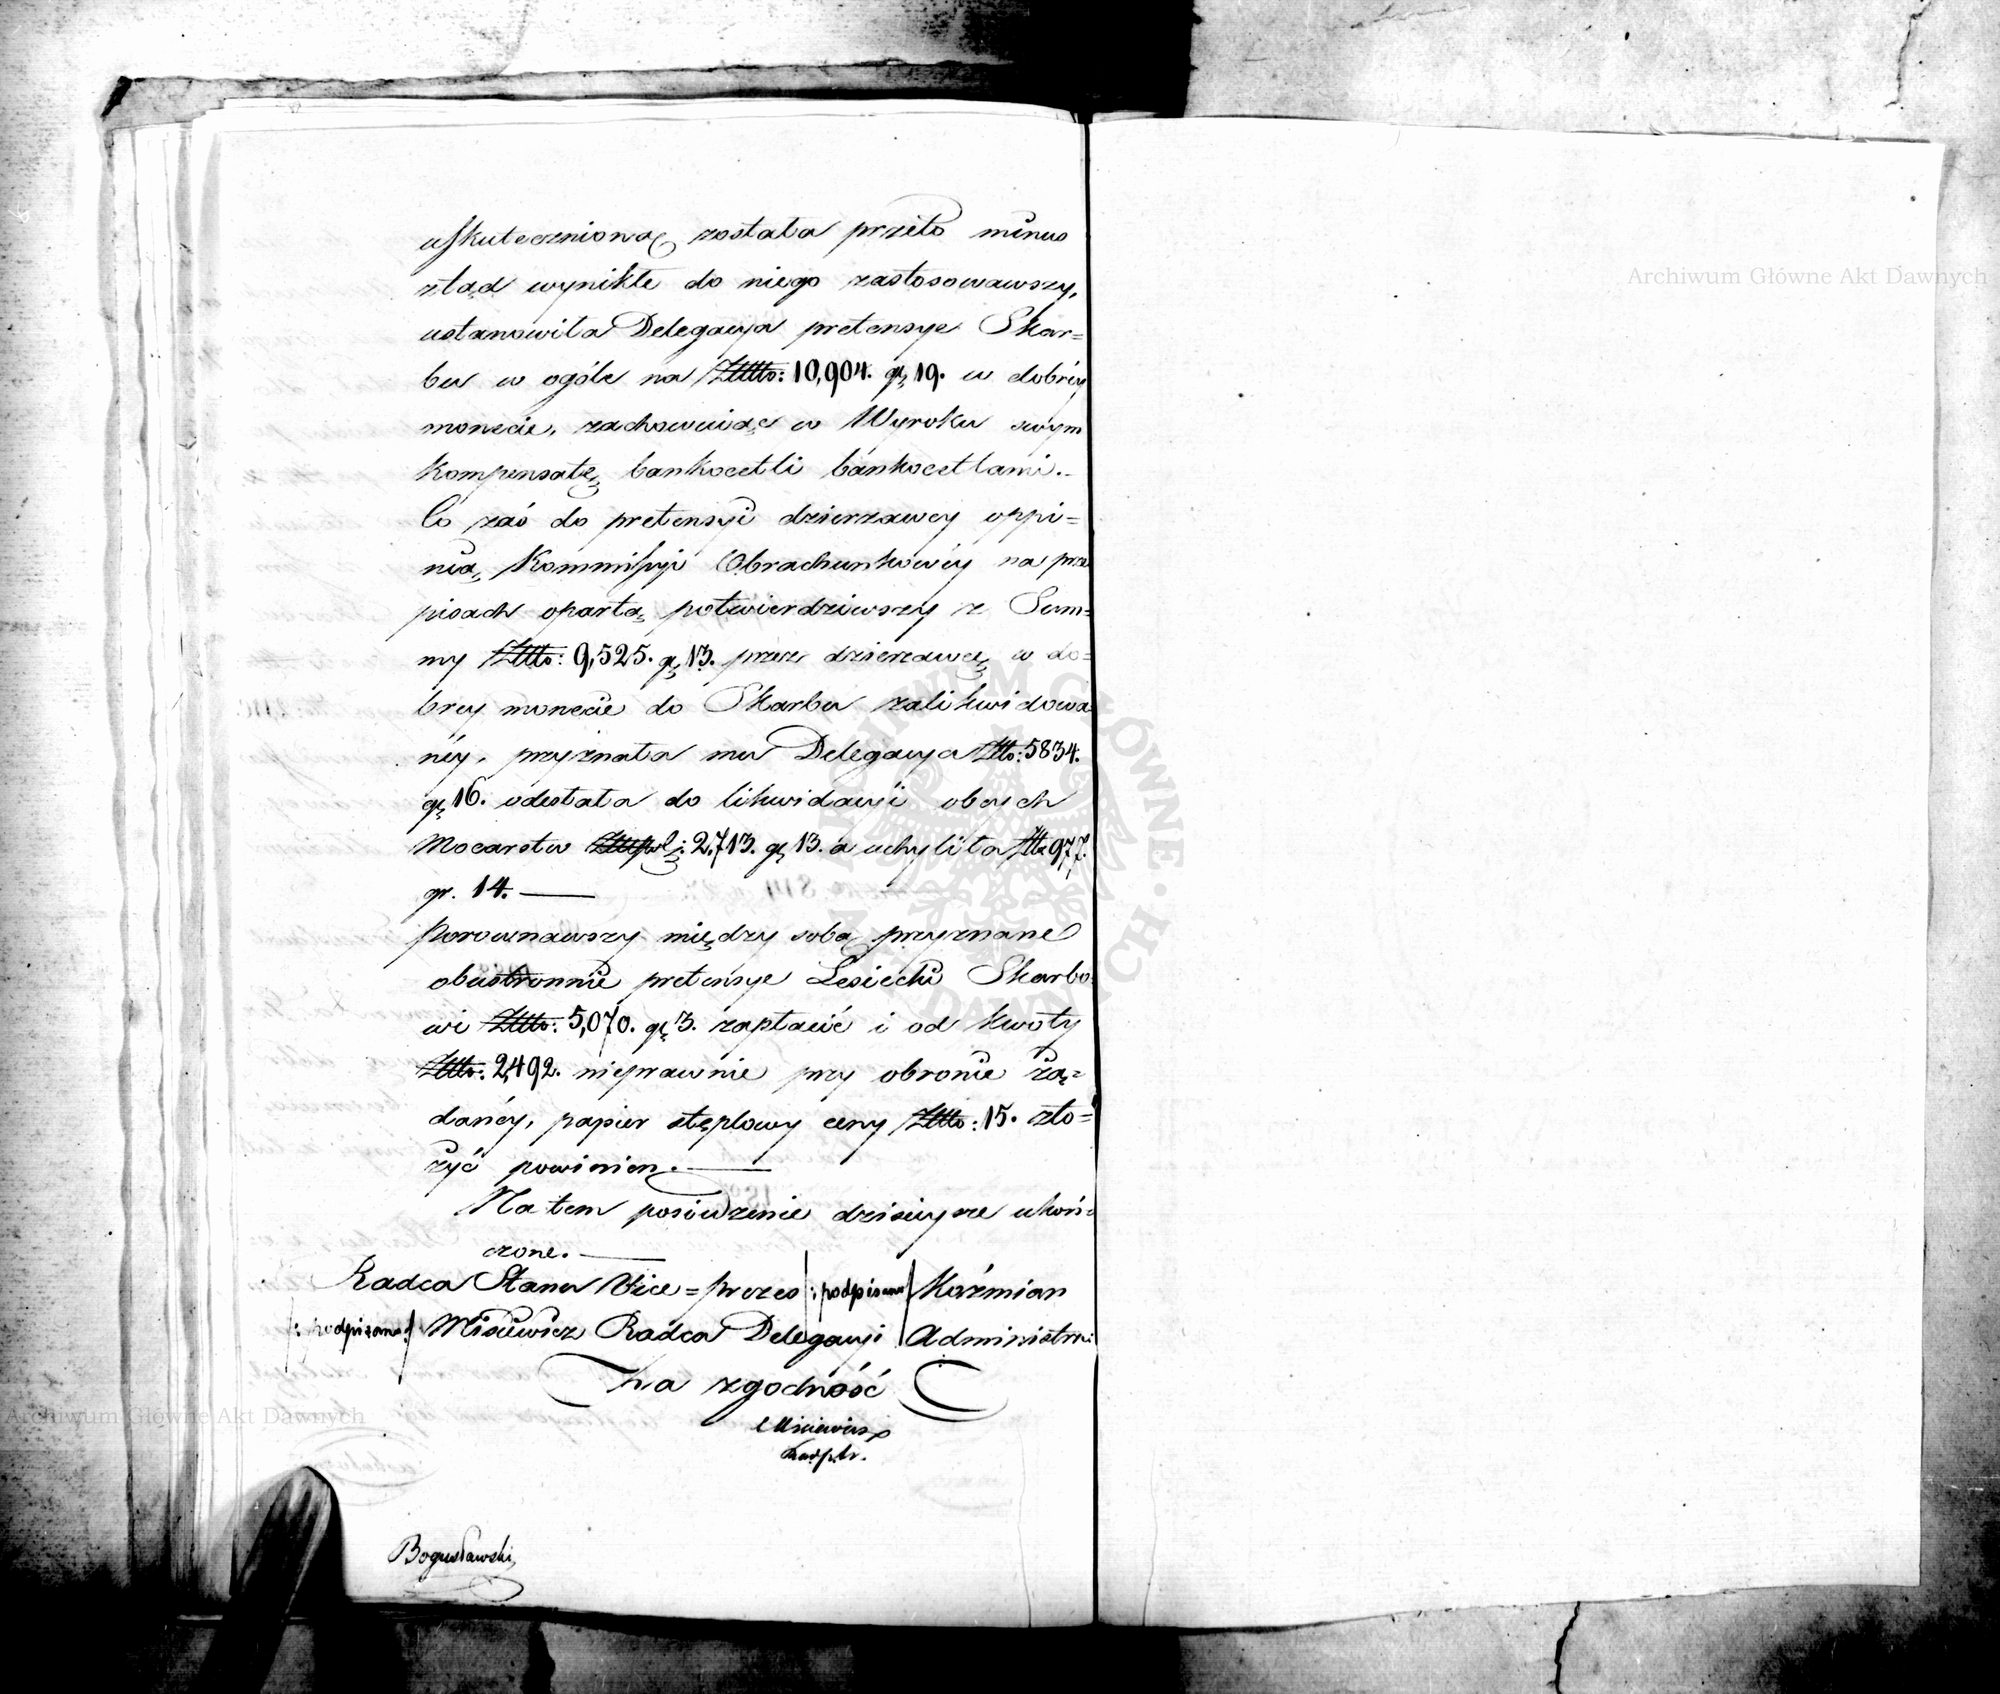 uskuteczniona, została przeto minus
ztąd wynikłe do niego zastosowawszy,
ustanowiła Delegacya pretensye Skar=
bu w ogóle na Złłto: 10,904. gr 19. w dobréy
monecie, zachowuiąc w Wyroku swym
kompensatę, bankocetli bankocetlami.-
Co zaś do pretensyi dzierzawcy oppi=
nią, Kommissyi Obrachunkowéy na prze
pisach opartą, potwierdziwszy z Sum=
my Złłto: 9,525. gr 13. przez dzierzawcę, w do=
brey monecie do Skarbu zalikwidowa
néy, przyznała mu Delegacya Złto: 5834.
gr 16. odesłała do likwidacyi obcych
Mocarstw 2,713. gr 13. a uchyliła Złt 977.
gr. 14. —
Porownawszy między sobą przyznane
obustronnie pretensye Lesiecki Skarbo
wi Złłto: 5,070. gr 3. zapłacić i od kwoty
Złłto: 2,492. nieprawnie przy obronie żą=
danéy, papier stęplowy ceny Złłto: 15. zło=
żyć powinien. —
Na tem posiedzenie dzisieysze ukoń=
czone. —
Radca Stanu Vice=prezes /: podpisano / Koźmian
/: podpisano :/ Misiewicz Radca Delegacyi Administra:
Za zgodność
Misiewicz
Bogusławski
Archiwum Główne Akt Dawnych
Archiwum Główne Akt Dawnych
ARCHIWUM GŁÓWNE AKT DAWNYCH